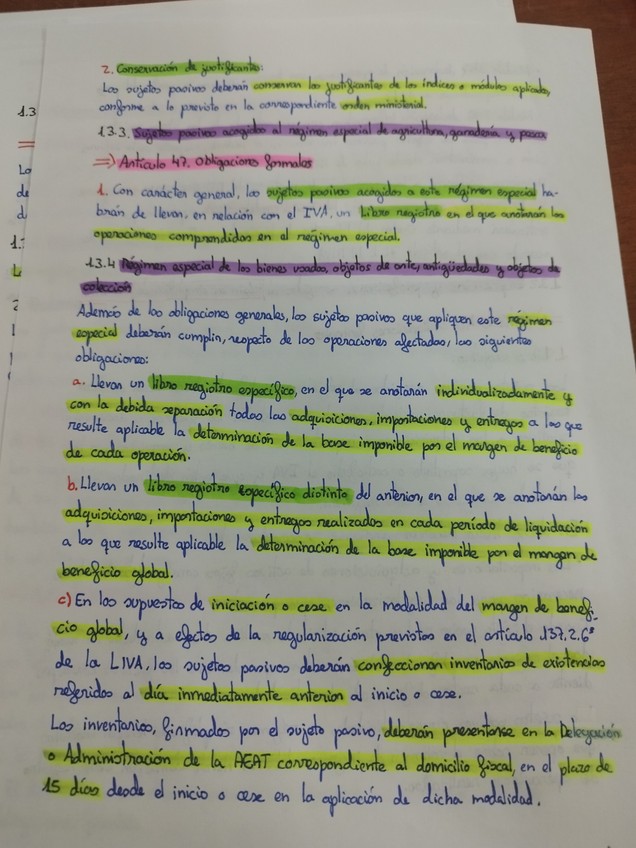 2. Conservación de justificantes:
Los sujetos pasivos deberán conservar los justificantes de los índices o módulos aplicados,
conforme a lo previsto en la correspondiente orden ministerial.
13.3. Sujetos pasivos acogidos al régimen especial de agricultura, ganadería y pesca
=> Artículo 47. Obligaciones formales
1. Con carácter general, los sujetos pasivos acogidos a este régimen especial ha-
brán de llevar, en relación con el IVA, un Libro registro en el que anotarán las
operaciones comprendidas en el régimen especial.
13.4 Régimen especial de los bienes usados, objetos de arte, antigüedades y objetos de
colección
Además de las obligaciones generales, los sujetos pasivos que apliquen este régimen
especial deberán cumplir, respecto de las operaciones afectadas, las siguientes
obligaciones:
a. Llevar un libro registro específico, en el que se anotarán individualizadamente y
con la debida separación todas las adquisiciones, importaciones y entregas a las que
resulte aplicable la determinación de la base imponible por el margen de beneficio
de cada operación.
b. Llevar un libro registro específico distinto del anterior, en el que se anotarán las
adquisiciones, importaciones y entregas realizadas en cada período de liquidación
a las que resulte aplicable la determinación de la base imponible por el margen de
beneficio global.
c) En los supuestos de iniciación o cese en la modalidad del margen de benefi-
cio global, y a efectos de la regularización previstas en el artículo 137.2.6ª
de la LIVA, los sujetos pasivos deberán confeccionar inventarios de existencias
referidos al día inmediatamente anterior al inicio o cese.
Los inventarios, firmados por el sujeto pasivo, deberán presentarse en la Delegación
o Administración de la AEAT correspondiente al domicilio fiscal, en el plazo de
15 días desde el inicio o cese en la aplicación de dicha modalidad.
1.3
Lo
de